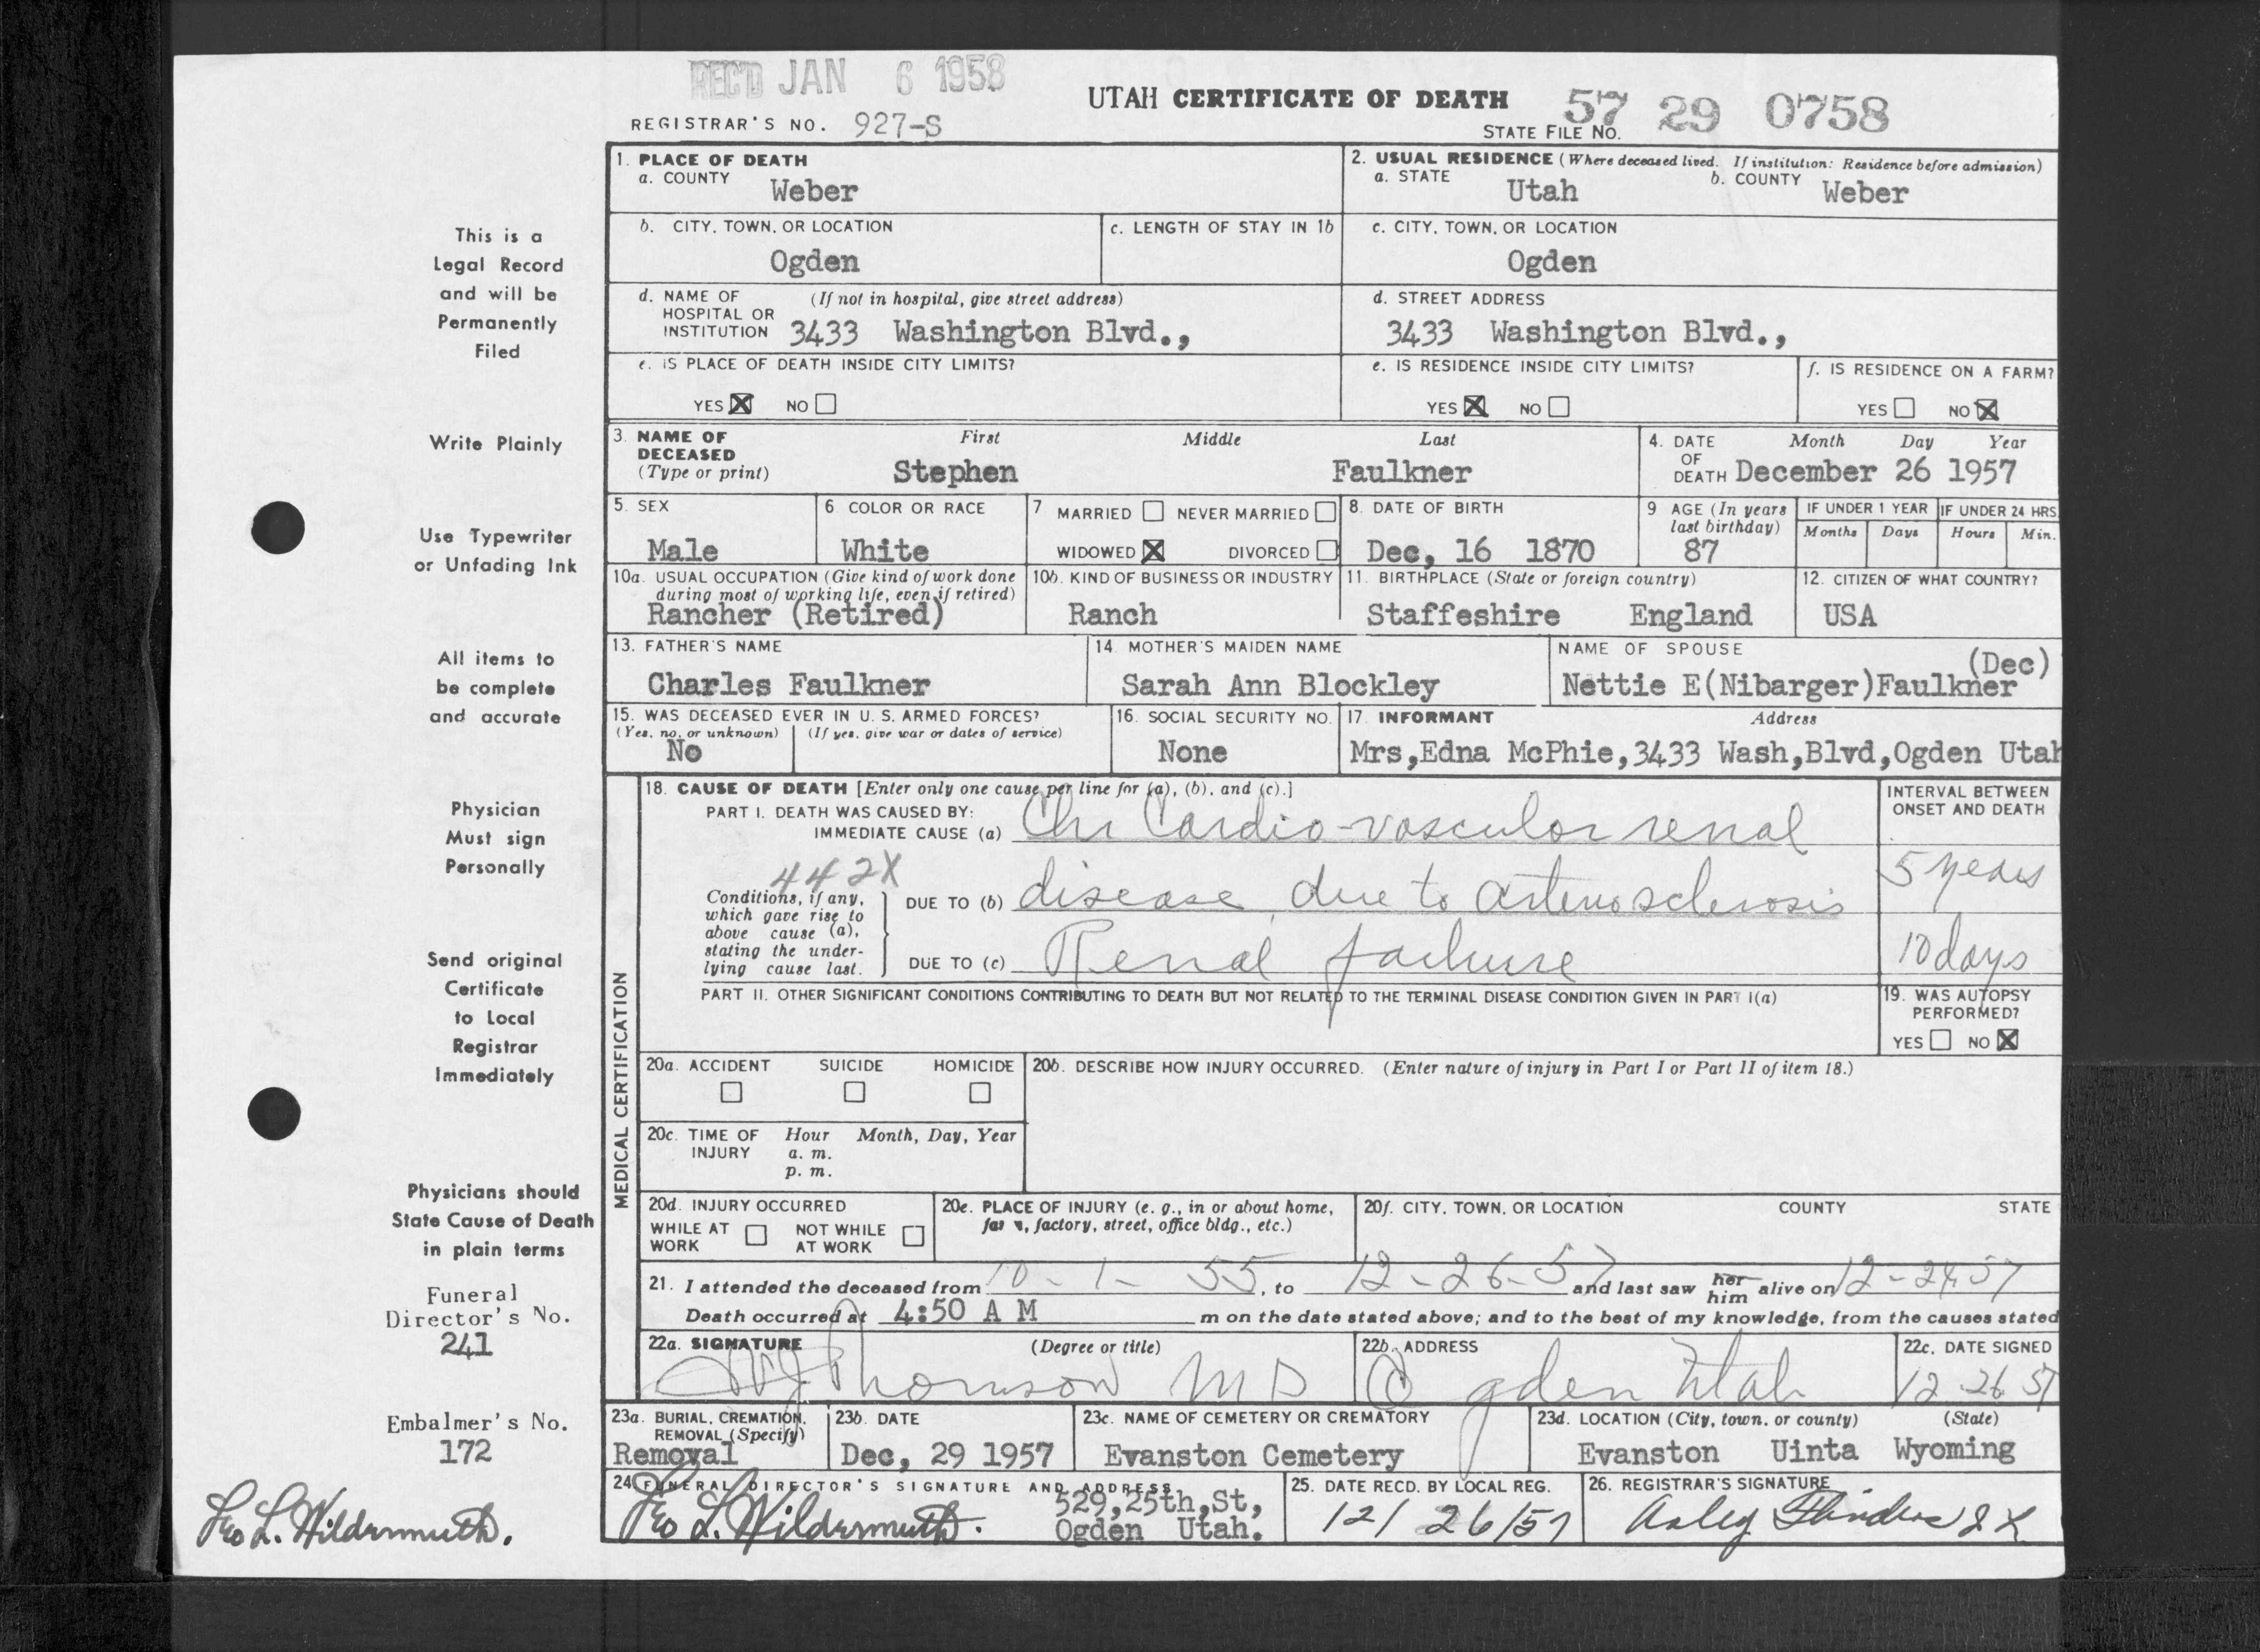 REC'D JAN 6 1958
UTAH CERTIFICATE OF DEATH
57 29 0758
REGISTRAR'S NO. 927-S
STATE FILE NO.
1. PLACE OF DEATH
a. COUNTY Weber
2. USUAL RESIDENCE (Where deceased lived. If institution: Residence before admission)
a. STATE Utah b. COUNTY Weber
b. CITY, TOWN, OR LOCATION Ogden
c. LENGTH OF STAY IN 1b
c. CITY, TOWN, OR LOCATION Ogden
d. NAME OF HOSPITAL OR INSTITUTION (If not in hospital, give street address) 3433 Washington Blvd.,
d. STREET ADDRESS 3433 Washington Blvd.,
e. IS PLACE OF DEATH INSIDE CITY LIMITS?
YES ☒ NO ☐
e. IS RESIDENCE INSIDE CITY LIMITS?
YES ☒ NO ☐
f. IS RESIDENCE ON A FARM?
YES ☐ NO ☒
3. NAME OF DECEASED (Type or print) First Middle Last
Stephen Faulkner
4. DATE OF DEATH Month Day Year
December 26 1957
5. SEX Male
6 COLOR OR RACE White
7 MARRIED ☐ NEVER MARRIED ☐
WIDOWED ☒ DIVORCED ☐
8. DATE OF BIRTH Dec, 16 1870
9 AGE (In years last birthday) 87
IF UNDER 1 YEAR Months Days
IF UNDER 24 HRS Hours Min.
10a. USUAL OCCUPATION (Give kind of work done during most of working life, even if retired)
Rancher (Retired)
10b. KIND OF BUSINESS OR INDUSTRY
Ranch
11. BIRTHPLACE (State or foreign country)
Staffeshire England
12. CITIZEN OF WHAT COUNTRY?
USA
13. FATHER'S NAME
Charles Faulkner
14. MOTHER'S MAIDEN NAME
Sarah Ann Blockley
NAME OF SPOUSE
(Dec)
Nettie E(Nibarger)Faulkner
15. WAS DECEASED EVER IN U. S. ARMED FORCES?
(Yes, no, or unknown) (If yes, give war or dates of service)
No
16. SOCIAL SECURITY NO.
None
17. INFORMANT Address
Mrs,Edna McPhie,3433 Wash,Blvd,Ogden Utah
MEDICAL CERTIFICATION
18. CAUSE OF DEATH [Enter only one cause per line for (a), (b), and (c).]
PART I. DEATH WAS CAUSED BY:
IMMEDIATE CAUSE (a) Chr Cardio-vascular renal
442X
Conditions, if any, which gave rise to above cause (a), stating the underlying cause last.
DUE TO (b) disease due to arteriosclerosis
DUE TO (c) Renal failure
INTERVAL BETWEEN ONSET AND DEATH
5 years
10 days
PART II. OTHER SIGNIFICANT CONDITIONS CONTRIBUTING TO DEATH BUT NOT RELATED TO THE TERMINAL DISEASE CONDITION GIVEN IN PART I(a)
19. WAS AUTOPSY PERFORMED?
YES ☐ NO ☒
20a. ACCIDENT SUICIDE HOMICIDE
☐ ☐ ☐
20b. DESCRIBE HOW INJURY OCCURRED. (Enter nature of injury in Part I or Part II of item 18.)
20c. TIME OF INJURY Hour Month, Day, Year
a. m.
p. m.
20d. INJURY OCCURRED
WHILE AT WORK ☐ NOT WHILE AT WORK ☐
20e. PLACE OF INJURY (e. g., in or about home, farm, factory, street, office bldg., etc.)
20f. CITY, TOWN, OR LOCATION COUNTY STATE
21. I attended the deceased from 10-1-55, to 12-26-57 and last saw her him alive on 12-24-57
Death occurred at 4:50 A M m on the date stated above; and to the best of my knowledge, from the causes stated
22a. SIGNATURE (Degree or title)
Thomson MD
22b. ADDRESS
Ogden Utah
22c. DATE SIGNED
12-26-57
23a. BURIAL, CREMATION, REMOVAL (Specify)
Removal
23b. DATE
Dec, 29 1957
23c. NAME OF CEMETERY OR CREMATORY
Evanston Cemetery
23d. LOCATION (City, town, or county) (State)
Evanston Uinta Wyoming
24 FUNERAL DIRECTOR'S SIGNATURE AND ADDRESS
Geo L. Wildermuth.
529,25th,St,
Ogden Utah.
25. DATE RECD. BY LOCAL REG.
12/26/57
26. REGISTRAR'S SIGNATURE
This is a
Legal Record
and will be
Permanently
Filed
Write Plainly
Use Typewriter
or Unfading Ink
All items to
be complete
and accurate
Physician
Must sign
Personally
Send original
Certificate
to Local
Registrar
Immediately
Physicians should
State Cause of Death
in plain terms
Funeral
Director's No.
241
Embalmer's No.
172
Geo L. Wildermuth.